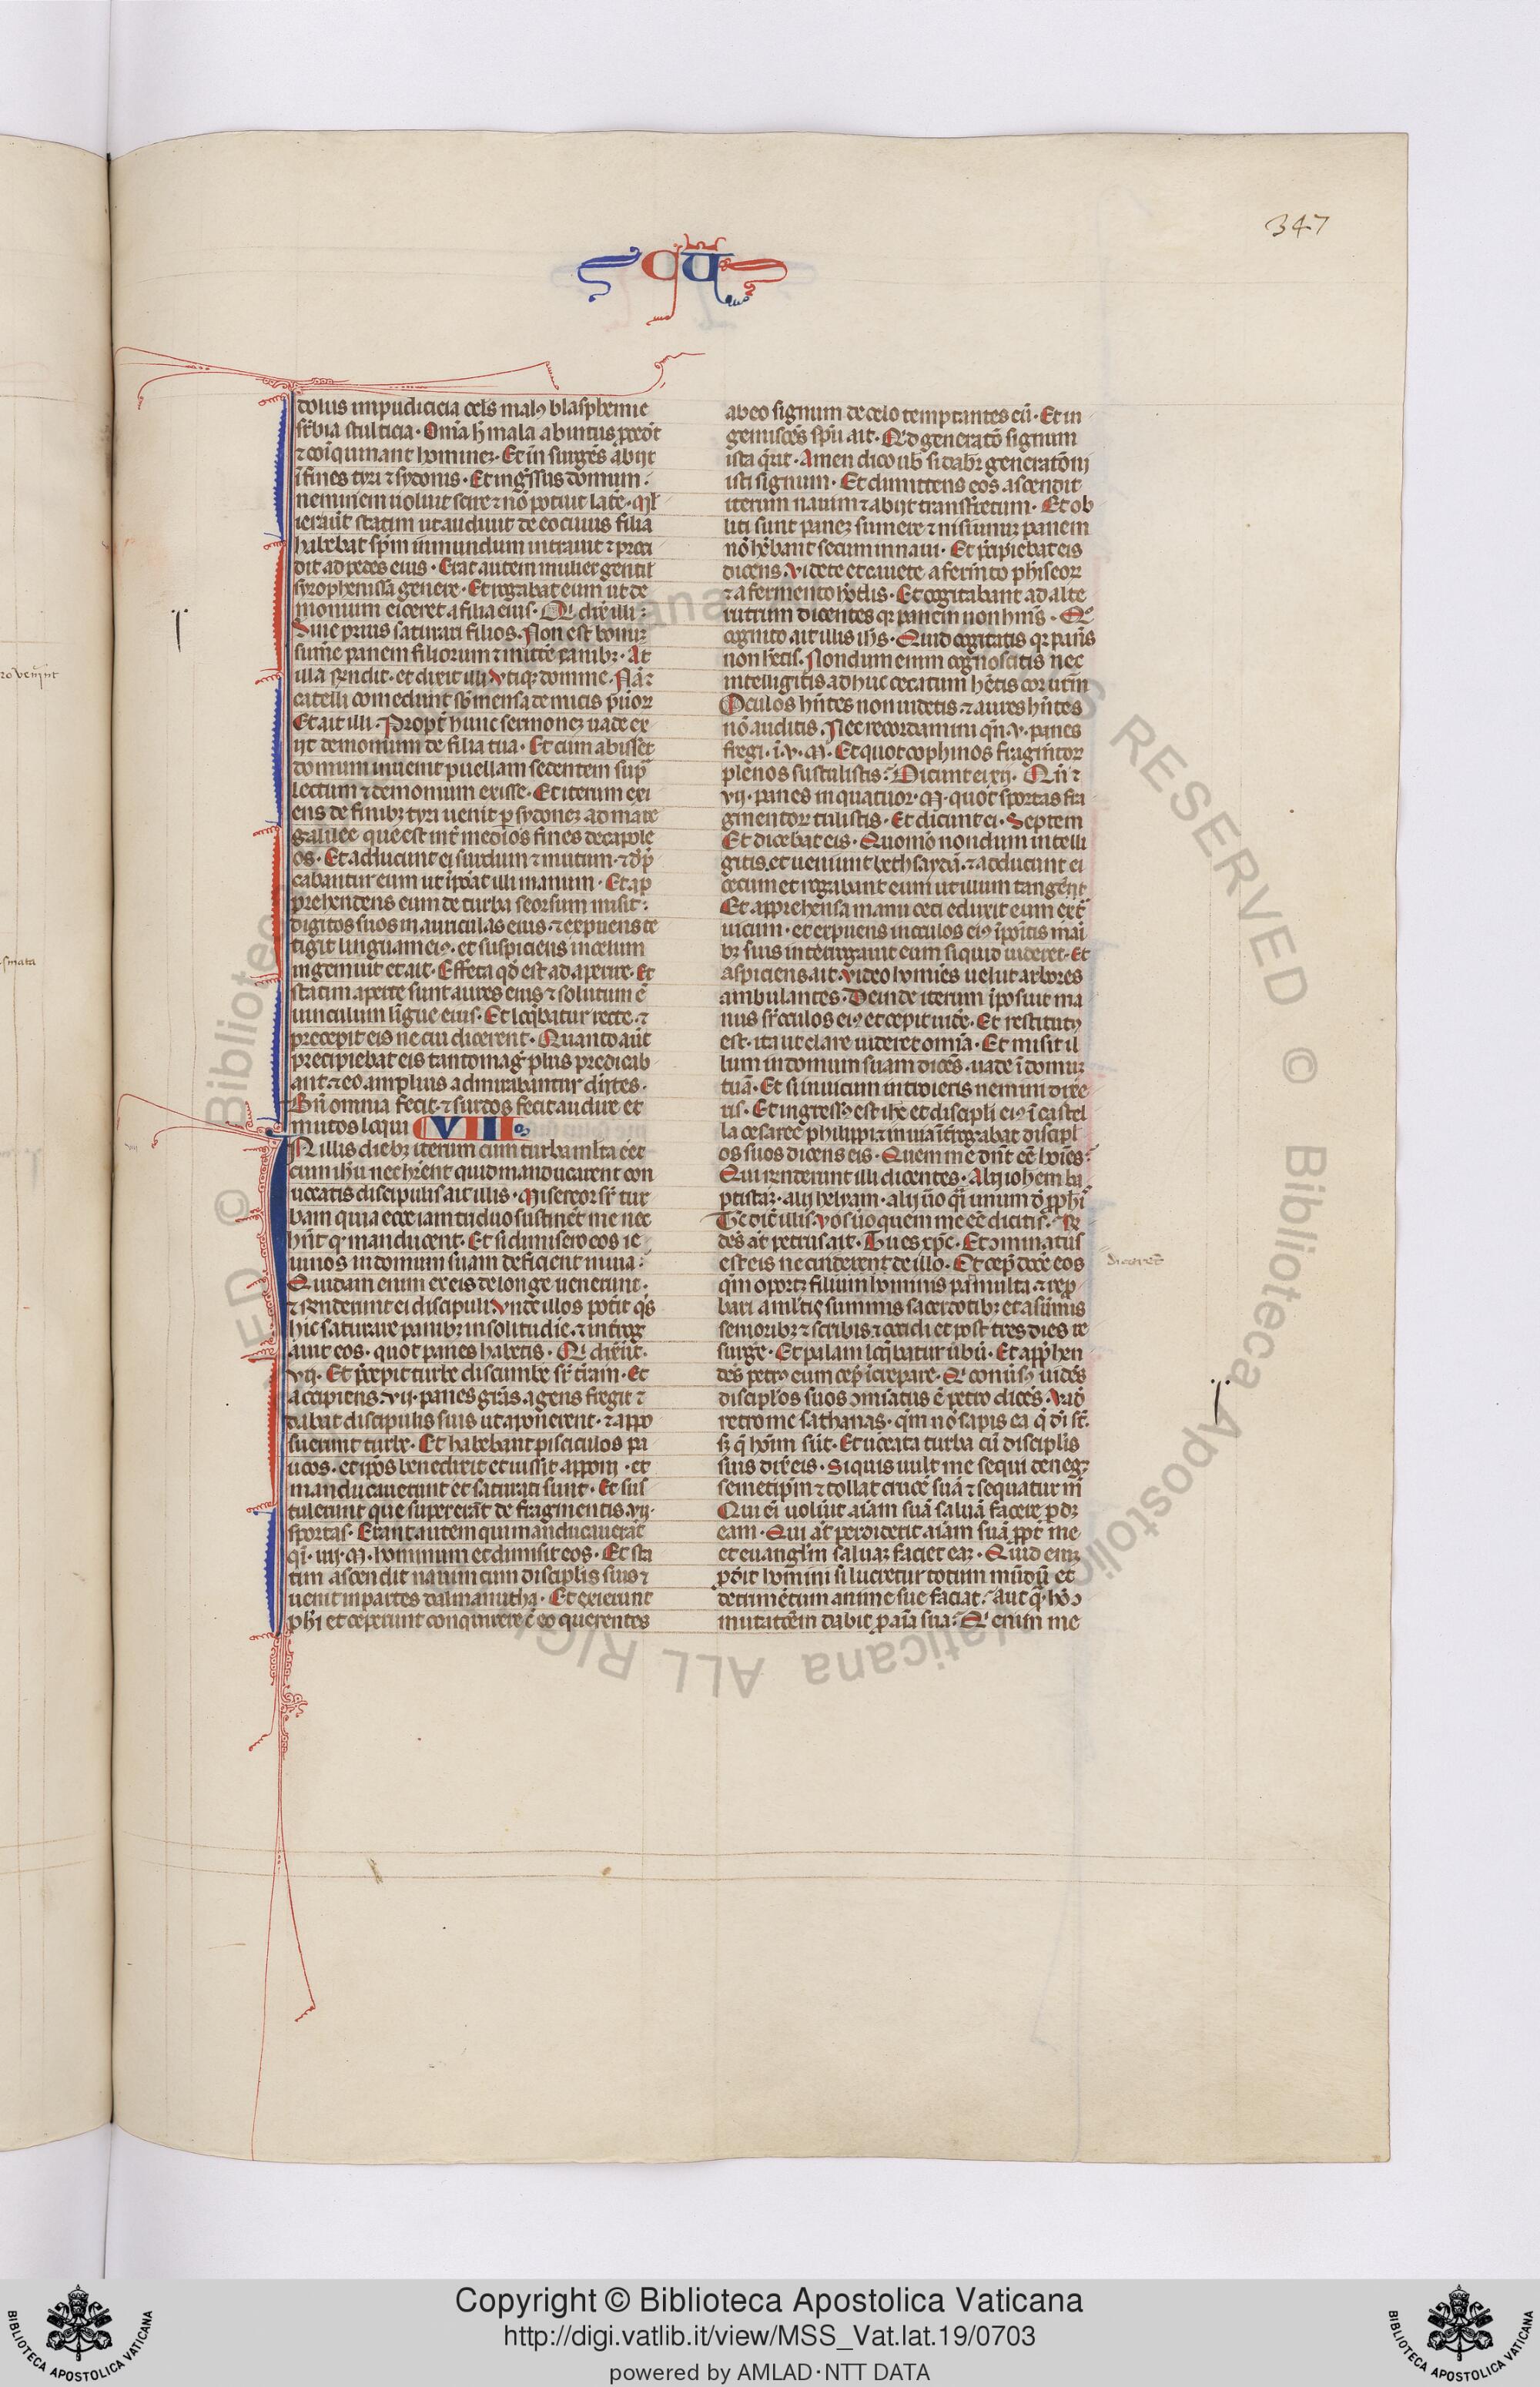 347
dolus impudicicia ocls malꝰ blasphemie
stulticia. Om̄ia h̄ mala ab intus ꝓcedūt
⁊ coīquinant hominez. Et in surgēs abijt
ī fines tyri ⁊ sydonis. Et ingssus domum
neminem uoluit scire ⁊ nō potuit latē.
statim ut audiuit de eo cuius filia
habebat spm̄ inmundum intrauit ⁊ proci
dit ad pedes eius. Erat autem mulier gentil
syrophenissa genere. Et rogabat eum ut de
monium eiceret a filia eius.
Sine prius saturari filios. Non est bonuz
sume panem filiorum ⁊ mitte canibꝫ. At
illa rn̄dit. et dixit illi vtiqꝫ domine. Nā ⁊
catelli comedunt sb̄ mensa de micis puorꝝ
Et ait illi. Propt̄ hunc sermonez uade ex
ijt demonium de filia tua. Et cum abisset
domum inuenit puellam sedentem sup̄
lectum ⁊ demonium exisse. Et iterum exi
ens de finibꝫ tyri uenit ꝑ sydonez ad mare
galilee que est int̄ medios fines decapole
os. Et adducunt ei surdum ⁊ mutum. ⁊ dp̄
cabantur eum ut īpoāt illi manum. Et ap
prehendens eum de turba seorsum misit
digitos suos in auriculas eius. ⁊ expuens te
tigit linguam eiꝰ. et suspiciens in celum
ingemuit et ait. Effeta qd̄ est adaperire. Et
statim aperte sunt aures eius ⁊ solutum ē
uinculum ligue eius. Et loq̄batur recte. ⁊
precepit eis ne cui dicerent. Quanto aūt
precipiebat eis tanto mag̣ plus predicab
ant. ⁊ eo amplius admirabantur dn̄tes.
Bn̄ omnia fecit. ⁊ surdos fecit audire et
mutos loqui VIII
N illis diebꝫ iterum cum turba mlta eēt
cum ih̄u nec hr̄ent quid manducarent con
uocatis discipulis ait illis. Misereor sr̄ tur
bam quia ecce iam triduo sustinēt me nec
hn̄t q̄ manducent. Et si dimisero eos ie
iunos in domum suam deficient in uia
Quidam enim ex eis de longe uenerunt.
⁊ rn̄derunt ei discipuli vnde illos potit q̄s
hic saturare panibꝫ in solitudīe. ⁊ introg
auit eos. quot panes habetis.
vij. Et p̄cepit turbe discumbe sr̄ t̄ram. Et
accipiens. vij. panes gr̄as agens fregit ⁊
dabat discipulis suis ut aponerent. ⁊ appo
suerunt turbe. Et habebant pisciculos pa
ucos. et ip̄os benedixit et iussit apponi. et
manducauerunt et saturati sunt. Et sus
tulerunt que superāt de fragmentis. vij.
sportas. Erant autem qui manducauerāt
q̄i. iiij. M. hominum et dimisit eos. Et sta
tim ascendit nauim cum disciplis suis ⁊
uenit in partes dalmanutha. Et exierunt
phi et ceperunt conquirere c̄ eo querentes
ab eo signum de celo temptantes eū. Et in
gemiscēs spū ait. Qd generatō signum
ista q̄rit. Amen dico uob̄ si dabr̄ generatōni
isti signum. Et dimittens eos ascendit
iterum nauim ⁊ abijt transfretum. Et ob
liti sunt panez sumere ⁊ nisi unuz panem
nō hēbant secum in naui. Et p̄cipiebat eis
dicens. videte et cauete a fermto phiseorꝝ
⁊ a fermento hodis. Et cogitabant ad alte
rutrum dicentes qꝛ panem non hm̄s.
cognito ait illis ih̄s. Quid cogitatis qꝛ pan̄s
non hetis. Nondum enim cognoscitis nec
intelligitis adhuc cecatum hētis cor urm̄
Oculos hn̄tes non uidetis. ⁊ aures hn̄tes
nō auditis. Nec recordamini qn̄. v. panes
fregi. ī. v. M. Et quot cophinos fragm̄torꝝ
plenos sustulistis. Dicunt ei xij. Qn̄ ⁊
vij. panes in quatuor. M. quot sportas fra
gmentorꝝ tulistis. Et dicunt ei. Septem
Et dicebat eis. Quomō nondum intelli
gitis. et ueniunt bethsaydā. ⁊ adducunt ei
cecum et rogabant eum ut illum tangēt
Et apprehēnsa manu ceci eduxit eum ext̄
uicum. et expuens in oculos eiꝰ īpoitis maī
bꝫ suis interrogauit eum si quid uideret. Et
aspiciens ait. video homies uelut arbores
ambulantes. Deinde iterum īposuit ma
nus sr̄ oculos eiꝰ et cepit uidē. Et restitutꝰ
est. ita ut clare uideret omīa. Et misit il
lum in domum suam dicēs. uade ī domuz
tuā. Et si in uicum introieris nemini dixe
ris. Et ingressꝰ est ih̄c et discipli eiꝰ ī castel
la cesaree philippi. ⁊ in uia īt̄rogabat discipl
os suos dicens eis. Quem me dn̄t eē hoīes.
Qui rn̄derunt illi dicentes. Alij iohem ba
ptistaz. alij helyam. alij ū̄o q̄i unum d̄ ꝓphī
Tc̄ dic̄ illis. vos ūo quem me eē dicitis. R
dēs at petrus ait. Tu es xp̄c. Et ꝯminatus
est eis ne cui dicerent de illo. Et cep̄ docē eos
qm̄ oportꝫ filium hominis pati multa. ⁊ rep
bari a summis sacerdotibꝫ et
senioribꝫ ⁊ scribis ⁊ occidi et post tres dies re
surgē. Et palam loq̄batur ūbū. Et app̄hen
dēs petrꝰ eum cep̄ īcrepare. Q̄ conūsꝰ uidēs
disciplos suos ꝯmīatus ē petro dicēs. vad̄
retro me sathanas. qm̄ nō sapis ea q̄ dī st̄.
sꝫ q̄ hoīm sūt. Et uocata turba cū disciplis
suis dix̄ eis. Si quis uult me sequi denegꝫ
semetipm̄ ⁊ tollat crucē suā ⁊ sequatur m̄
Qui eī uolūit aīam suā saluā facere ꝑdꝫ
eam. Qui at perdiderit aīam suā ꝓpt̄ me
et euanglīm saluaz faciet eaz. Quid enīz
ꝓdit homini si lucretur totum mūdū et
detrimētum anime sue faciat. aut q̄. hō ꝯ
mutatōem dabit ꝓ aīa sua. Q̄ enim me
diceret
Copyright © Biblioteca Apostolica Vaticana
http://digi.vatlib.it/view/MSS_Vat.lat.19/0703
powered by AMLAD·NTT DATA
BIBLIOTECA APOSTOLICA VATICANA
BIBLIOTECA APOSTOLICA VATICANA